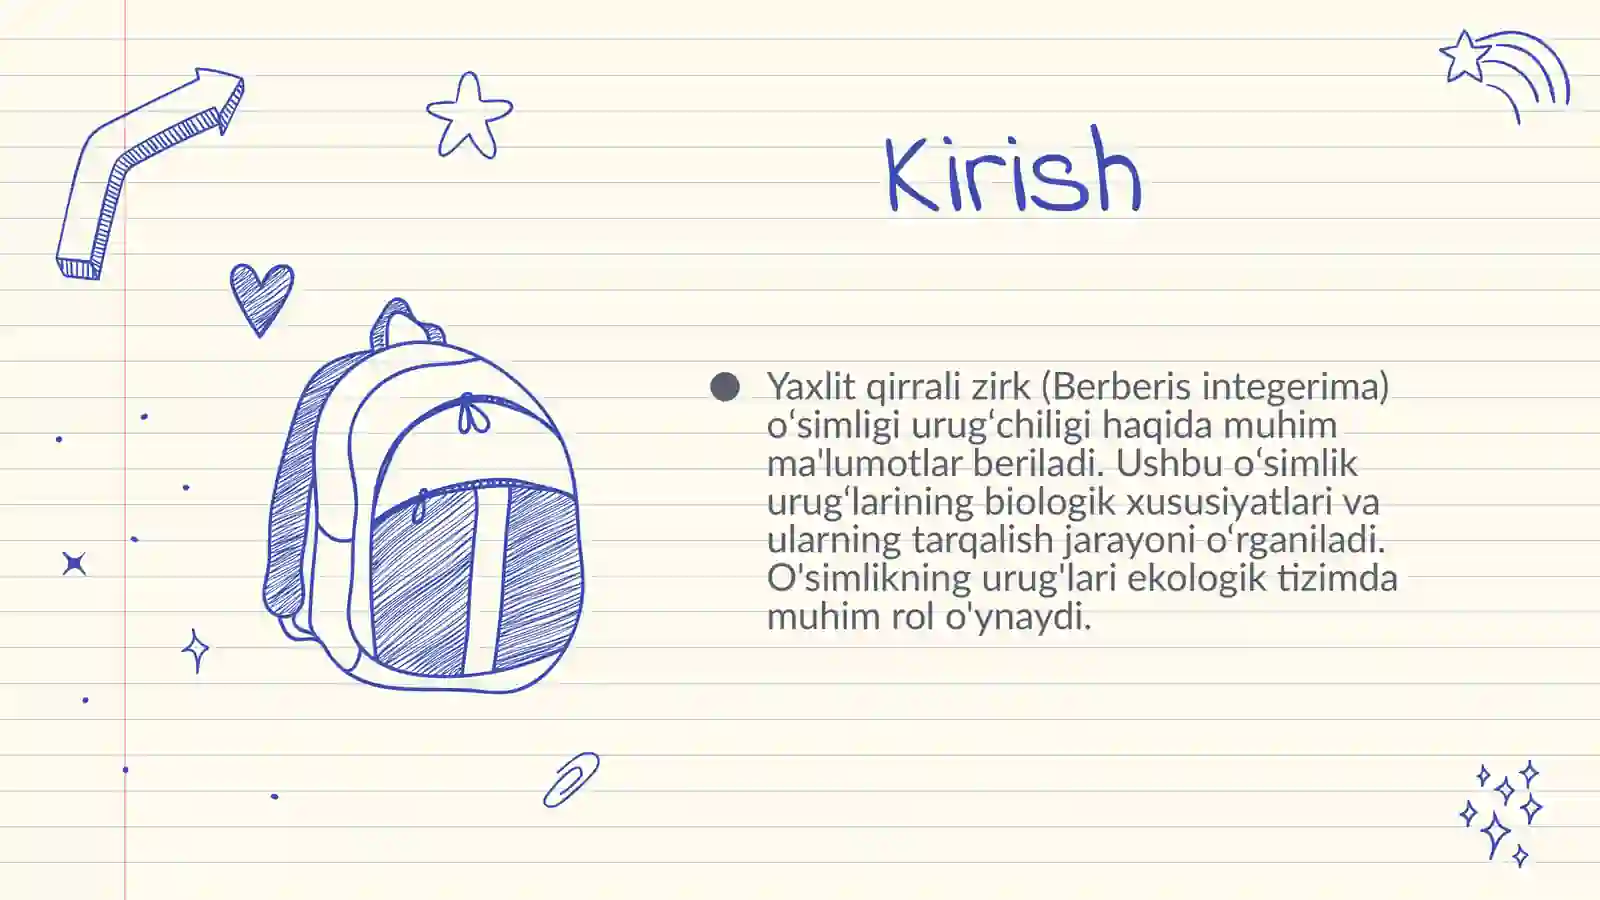 Kirish
Yaxlit qirrali zirk (Berberis integerima)
o‘simligi urug‘chiligi haqida muhim
ma'lumotlar beriladi. Ushbu o‘simlik
urug‘larining biologik xususiyatlari va
ularning tarqalish jarayoni o‘rganiladi.
O'simlikning urug'lari ekologik tizimda
muhim rol o'ynaydi.